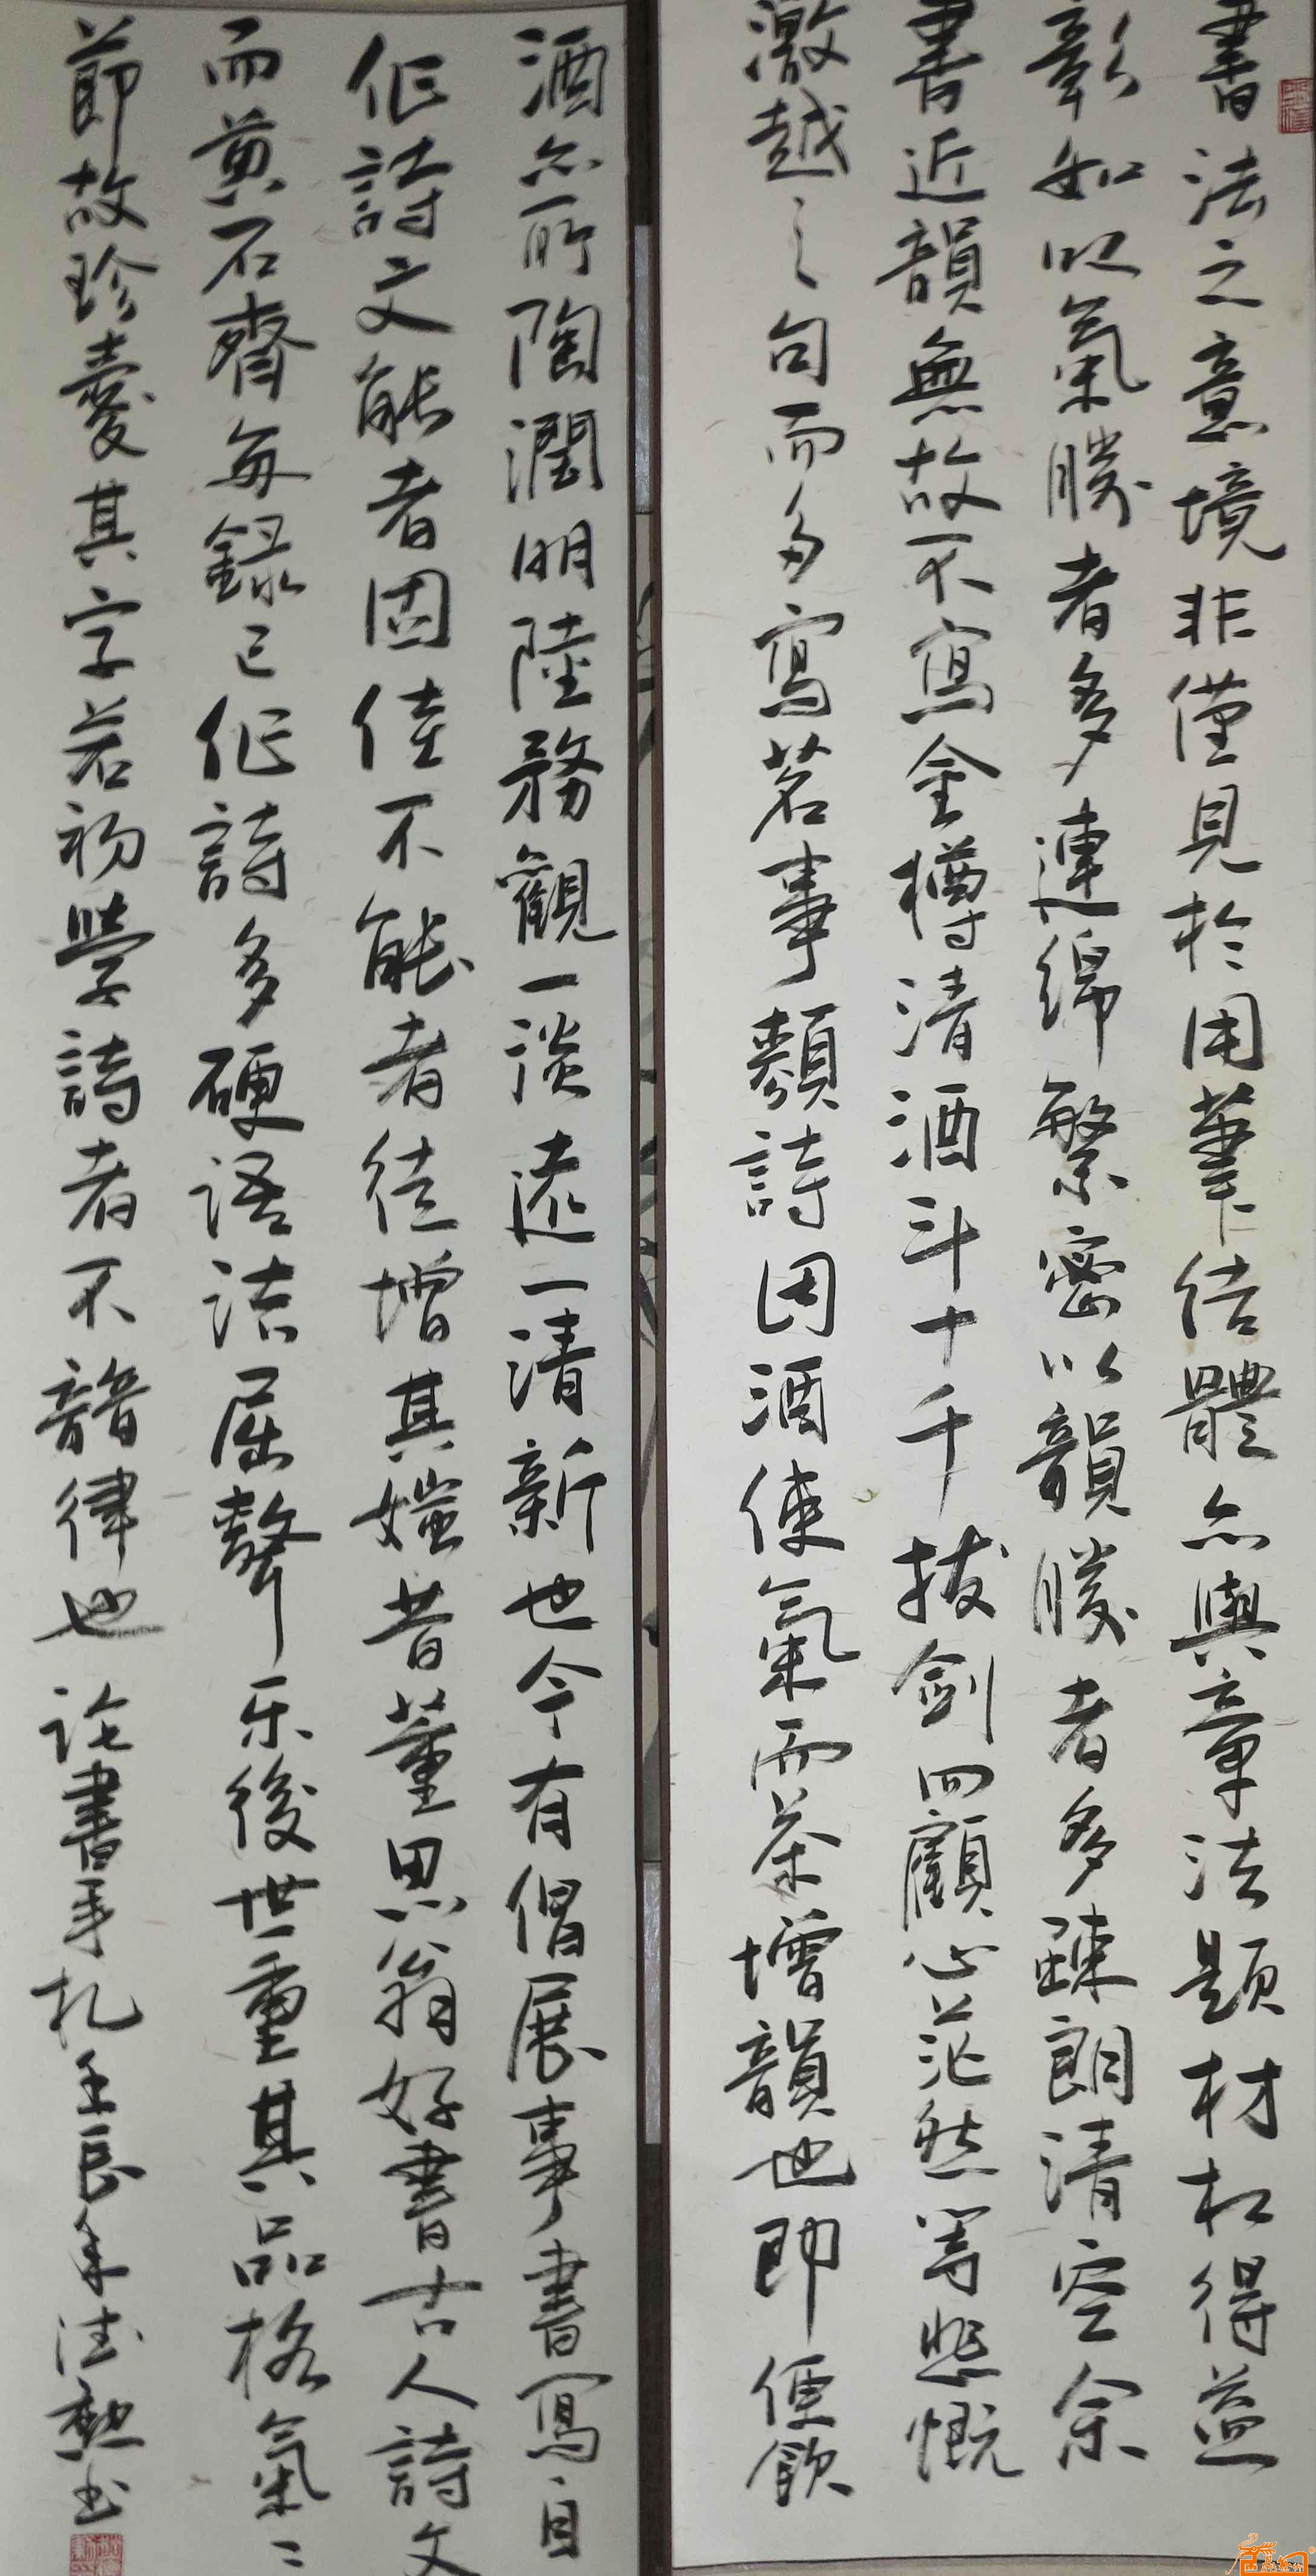 書法之意境非僅見於用筆結體亦與章法題材相得益
彰如以氣勝者多連綿繁密以韻勝者多疎朗清空余
書近韻無故不寫金樽清酒斗十千拔劍四顧心茫然等悲慨
激越之句而多寫茗事類詩因酒使氣而茶增韻也即便飲
酒亦所陶潤明陸務觀一淡遠一清新也今有倡展事書寫自
作詩文能者固佳不能者徒增其媸昔董思翁好書古人詩文
而黄石齊每錄己作詩多硬語詰屈聲乐後世重其品格氣
節故珍愛其字若初學詩者不諳律也 論書手札 壬辰 年 德勲书